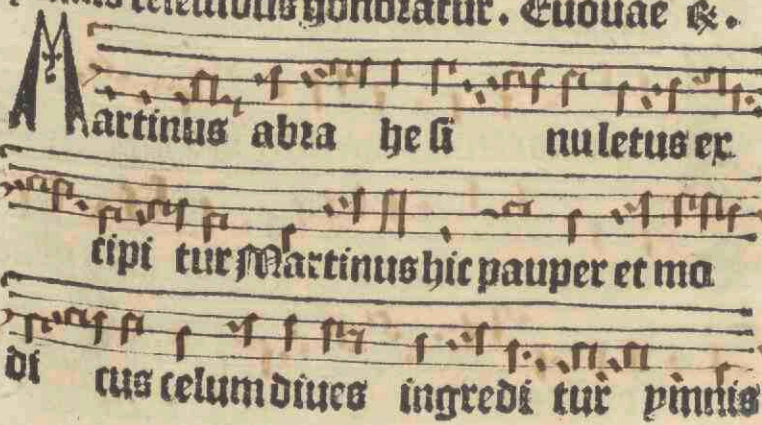 celestibus honoratur. Euouae &.
Martinus abra he si nu letus ex
cipi tur Martinus hic pauper et mo
di cus celum diues ingredi tur ymnis